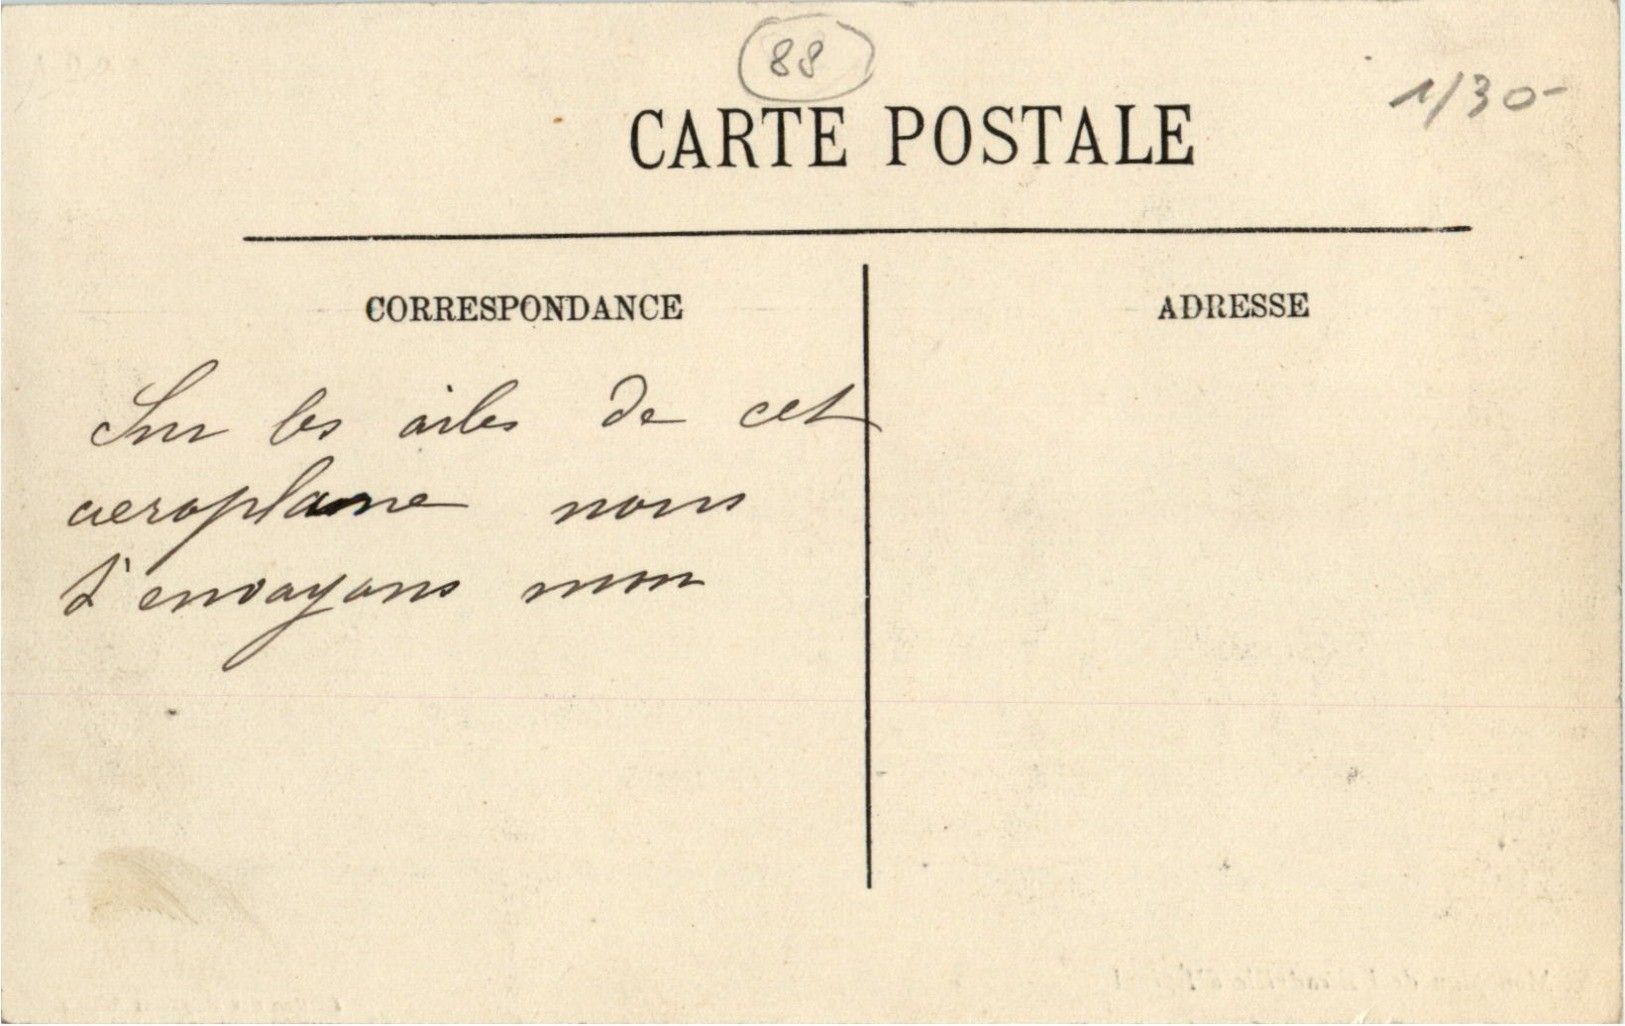 88
1/30-
CARTE POSTALE
CORRESPONDANCE
ADRESSE
Sur les ailes de cet
aeroplane nous
t'envoyons mon